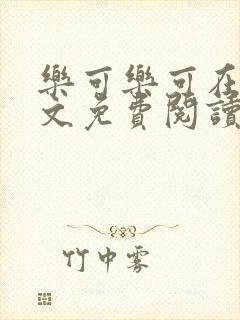 樂可樂可在
文免費閱讀
竹中雾